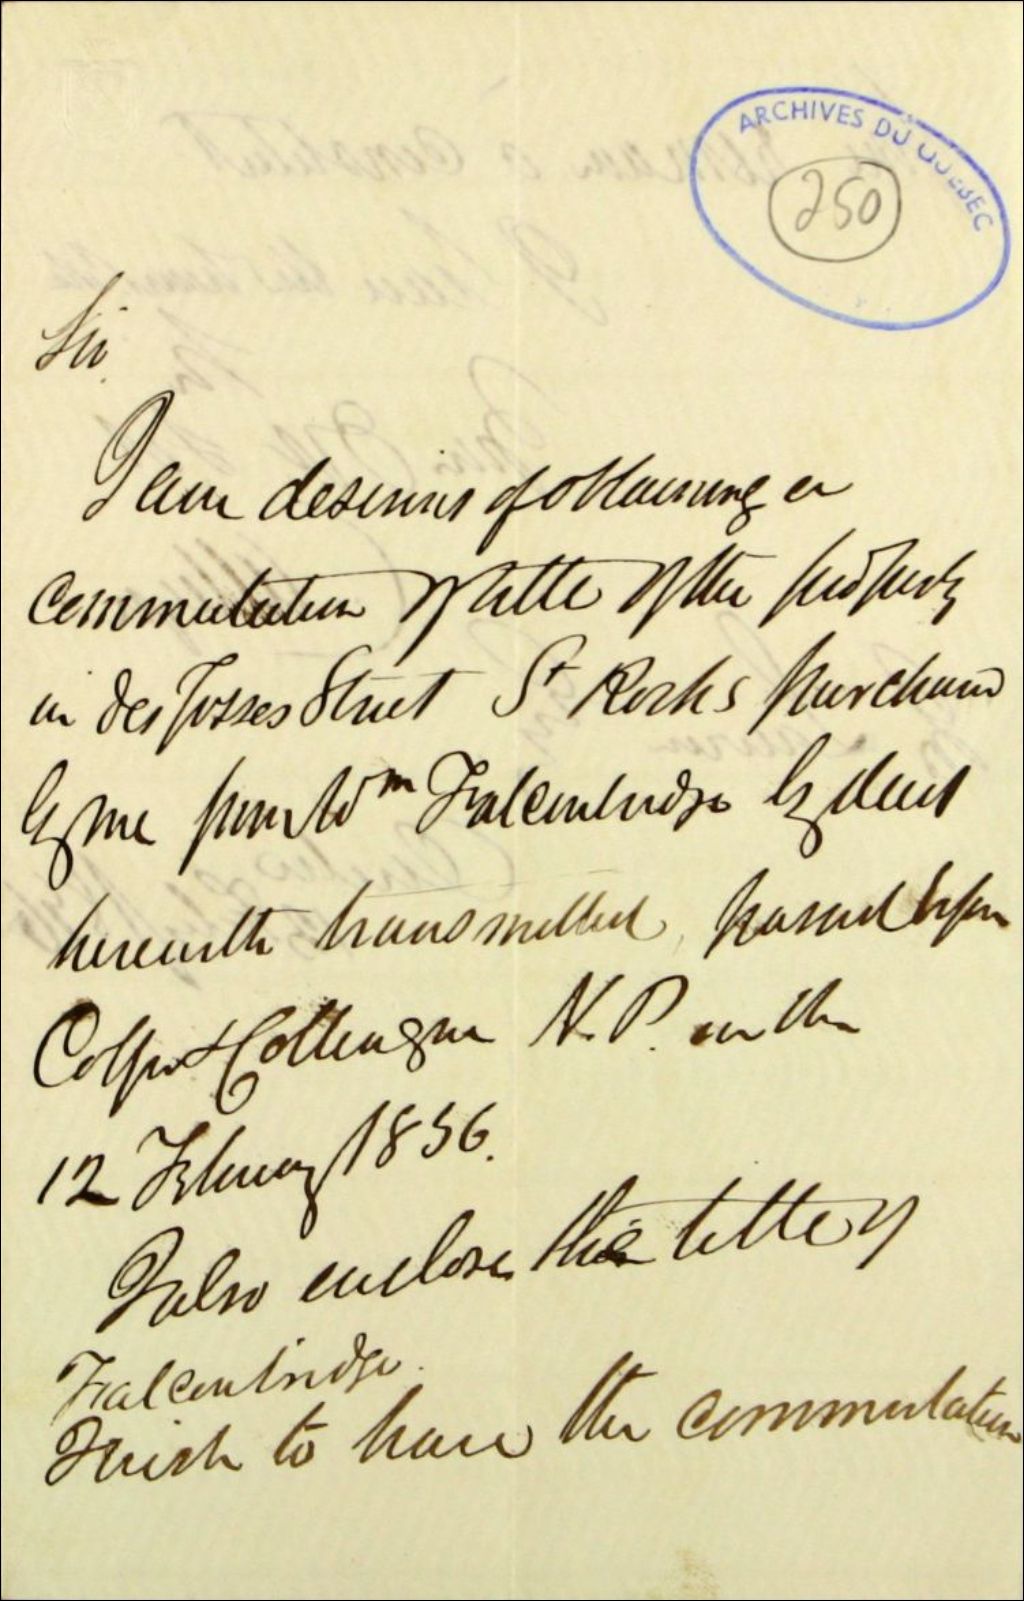 ARCHIVES DU QUÉBEC
250
Sir
I am desirous of obtaining a
commutation of title of the property
in Des Fosses Street St Rochs purchased
by me from Wm Falconbridge by deed
herewith transmitted, passed before
Colleague N.P. on the
12 February 1856.
I also enclose the title of
Falconbridge.
I wish to have the commutation